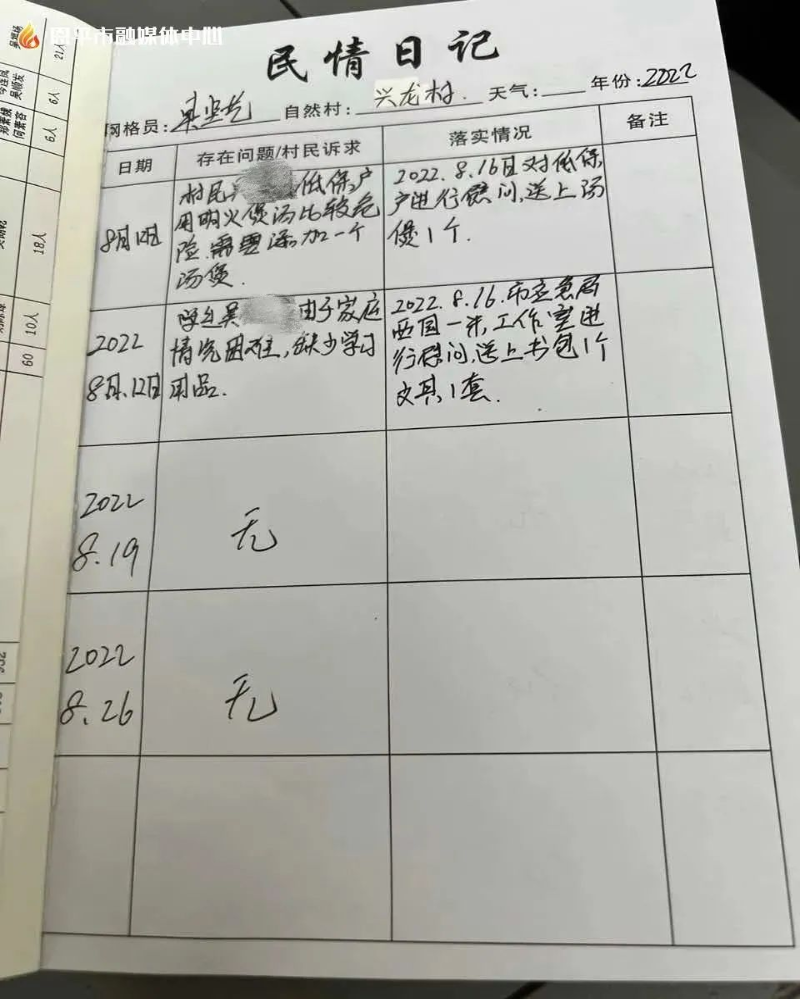 恩平市融媒体中心
民情日记
网格员: 自然村: 兴龙村. 天气: 年份: 2022
日期 存在问题/村民诉求 落实情况 备注
8月12日
村民 低保户
用明火煲汤比较危
险.需要添加一个
汤煲.
2022.8.16日对低保
户进行慰问,送上汤
煲1个.
2022
8月.12日
吴 由于家庭
情况困难,缺少学习
用品.
2022.8.16.市应急局
工作室进
行慰问,送上书包1个
文具1套.
2022
8.19
无
2022
8.26
无
21人
6人
6人
18人
10人
60